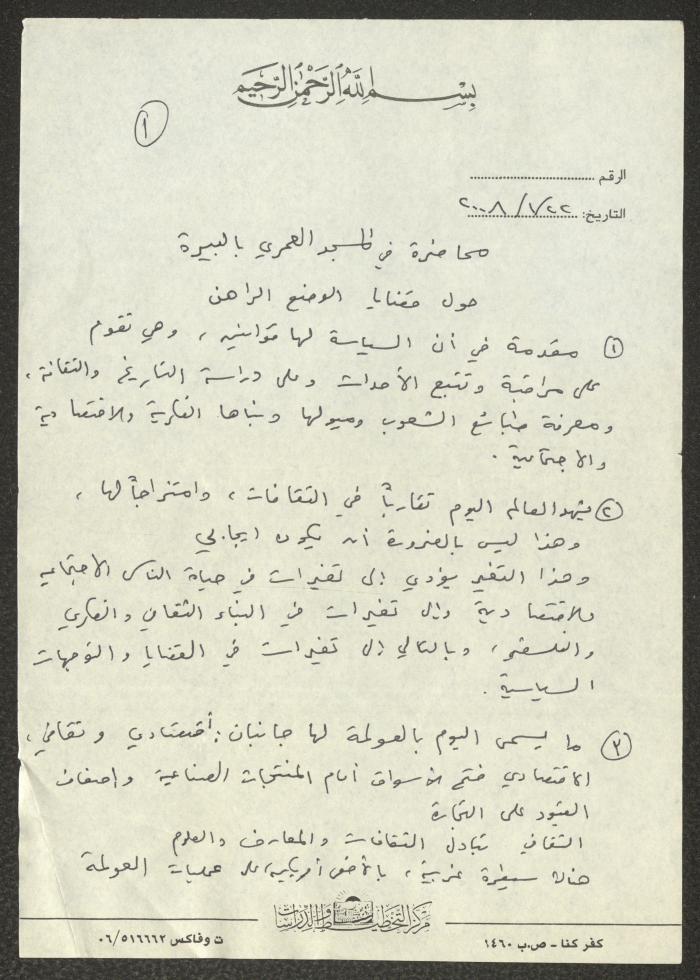 بسم الله الرحمن الرحيم
١
الرقم ........................
التاريخ: ٢٠٠٨/٧/٢٢
محاضرة في المسجد العمري بالبيرة
حول قضايا الوضع الراهن
① مقدمة في أن السياسة لها قوانين، وهي تقوم
على مراقبة وتتبع الأحداث وعلى دراسة التاريخ والثقافة،
ومعرفة طبائع الشعوب وميولها وبناها الفكرية والاقتصادية
والاجتماعية.
② يشهد العالم اليوم تقارباً في الثقافات، وامتزاجاً لها،
وهذا ليس بالضرورة أن يكون ايجابي
وهذا التغير يؤدي إلى تغيرات في حياة الناس الاجتماعية
والاقتصادية وإلى تغيرات في البناء الثقافي والفكري
والفلسفي، وبالتالي إلى تغيرات في القضايا والتوجهات
السياسية.
③ ما يسمى اليوم بالعولمة لها جانبان: أقتصادي وثقافي،
الاقتصادي فتح الأسواق أمام المنتجات الصناعية وإضعاف
القيود على التجارة
الثقافي تبادل الثقافات والمعارف والعلوم
هناك سيطرة غربية، بالأخص أمريكية على عمليات العولمة
مركز التخطيط والدراسات
كفر كنا - ص.ب ١٤٦٠
ت وفاكس ٠٦/٥١٦٦٦٢